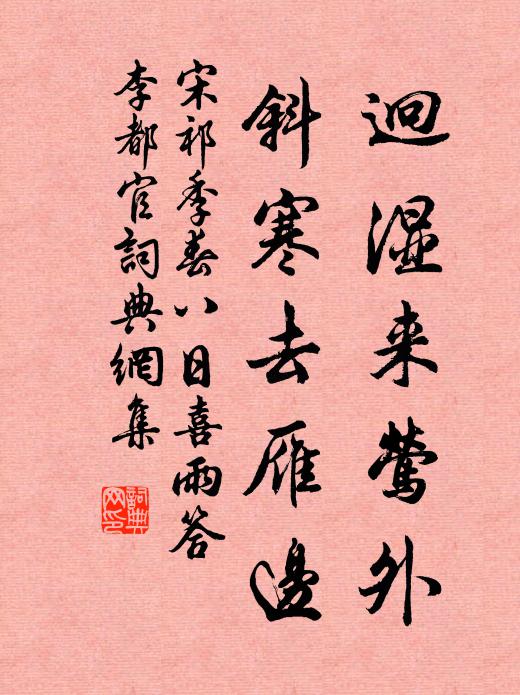 迥湿来莺外
斜寒去雁邊
宋祁季春八日喜雨答
李都官詞典網集
詞典
网印